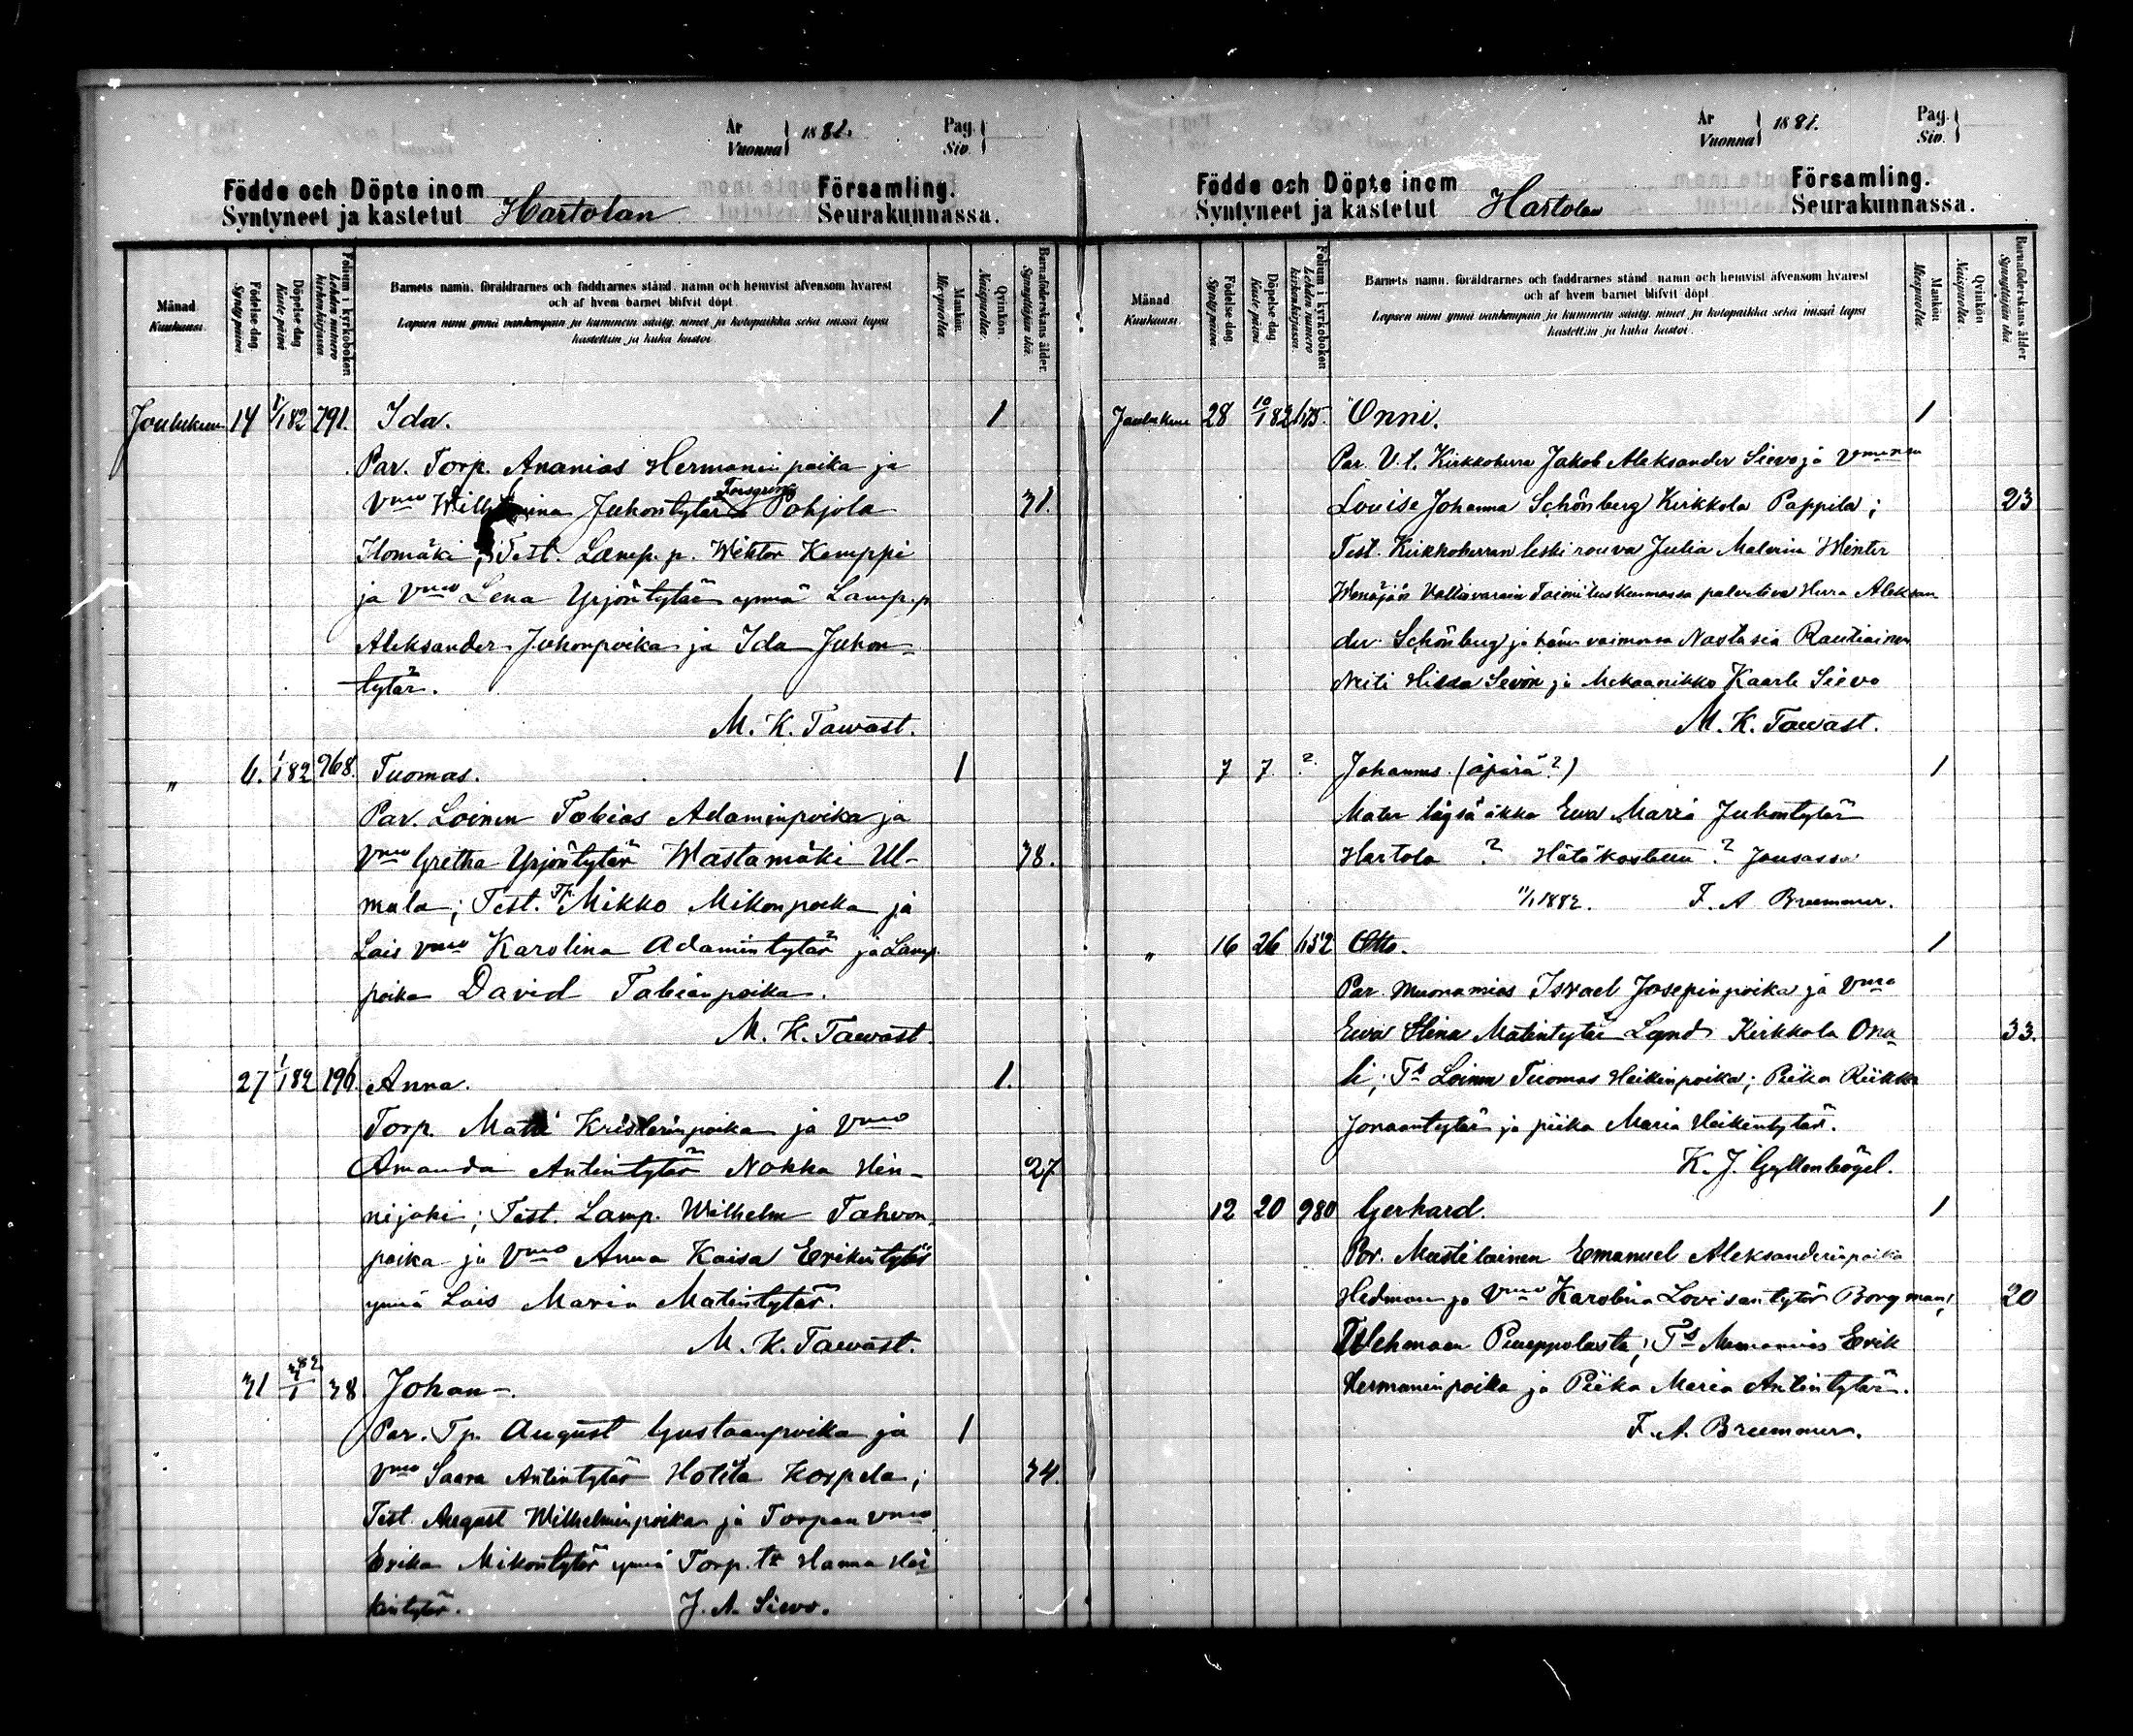 År
Vuonna 1881.
Pag.
Siv.
Födde och Döpte inom
Syntyneet ja kastetut Hartolan
Församling.
Seurakunnassa.
Månad
Kuukausi.
Födelse dag.
Synty päivä
Döpelse dag
Kaste päivä
Folium i kyrkoboken
Lehden numero kirkonkirjassa
Barnets namn, föräldrarnes och faddrarnes stånd, namn och hemvist äfvensom hvarest
och af hvem barnet blifvit döpt.
Lapsen nimi ynnä vanhempain ja kummein sääty, nimet ja kotopaikka sekä missä lapsi
kastettiin ja kuka kastoi.
Mankön.
Miespuolta
Qvinkön.
Naispuolta.
Barnaföderskans ålder.
Synnyttäjän ikä.
Joulukuu 14 1/1 82 791. Ida. 1
Par. Torp. Ananias Hermanin poika ja
Vmo Wilhelmina Juhontytär Forsgren Pohjola 31.
Ilomäki; Test. Lamp. p. Wiktor Kemppi
ja Vmo Lena Yrjöntytär ynnä Lamp. p
Aleksander Juhonpoika ja Ida Juhon-
tytär.
M. K. Tawast.
" 6. 1/1 82 968. Tuomas. 1
Par. Loinen Tobias Adaminpoika ja
Vmo Gretha Yrjöntytär Wastamäki Ul- 38.
mala; Test. Tp. Mikko Mikonpoika ja
Lois vmo Karolina Adamintytär ja Lamp.
poika David Tobianpoika.
M. K. Tawast.
27 1/1 82 196. Anna. 1.
Torp. Matti Kristerinpoika ja Vmo
Amanda Antintytär Nokka Hin- 27
nijoki; Test. Lamp. Wilhelm Tahvon-
poika ja Vmo Anna Kaisa Erikintytär
ynnä Lois Maria Matintytär.
M. K. Tawast.
31 3/1 82 38. Johan.
Par. Tp. August Gustaanpoika ja 1
Vmo Saara Antintytär Hotila Korpela; 34.
Test. August Wilhelminpoika ja Torpan vmo
Erika Mikontytär ynnä Torp. tr Hanna Hei
kintytär. J. A. Siewo.
År
Vuonna 1881.
Pag.
Siv.
Födde och Döpte inom
Syntyneet ja kastetut Hartolan
Församling.
Seurakunnassa.
Månad
Kuukausi.
Födelse dag.
Synty päivä.
Döpelse dag.
Kaste päivä
Folium i kyrkoboken
Lehden numero kirkonkirjassa.
Barnets namn, föräldrarnes och faddrarnes stånd, namn och hemvist äfvensom hvarest
och af hvem barnet blifvit döpt.
Lapsen nimi ynnä vanhempain ja kummein sääty, nimet ja kotopaikka sekä missä lapsi
kastettiin ja kuka kastoi.
Mankön
Miespuolta.
Qvinkön
Naispuolta.
Barnaföderskans ålder
Synnyttäjän ikä.
Joulukuu 28 10/1 82 Onni. 1
Par. V. t. Kirkkoherra Jakob Aleksander Siewo ja Vmonsa
Louise Johanna Schönberg Kirkkola Pappila; 23
Test. Kirkkoherran leski rouva Julia Malvina Winter
Wenäjän Valtiovarain Toimituskunnassa palveleva Herra Aleksan
der Schönberg ja hänen vaimonsa Nastasia Rautiainen
Neiti Hilda Sevón ja Mekaanikko Kaarle Siewo
M. K. Tawast.
7 7 ? Johannes. (äpärä?) 1
Mater itsgsä akka Ewa Maria Juhontytär
Hartola ? Hätäkastettu ? Jousassa
11/1 1882. F. A. Breemmer.
" 16 26 1152 Otto. 1
Par. Muonamies Israel Josepinpoika ja Vmo
Ewa Stina Matintytär Lund Kirkkola Ona 33.
li; Ts Loinen Tuomas Heikinpoika; Piika Riikka
Jonaantytär ja piika Maria Heikintytär.
K. J. Gyllenbögel.
12 20 980 Gerhard. 1
Par. Mustilainen Emanuel Aleksanderinpoika
Hedman ja Vmo Karolina Lovisantytär Borgman, 20
Tolehmaen Pumppolasta; Ts Muonamies Erik
Hermaninpoika ja Piika Maria Antintytär.
F. A. Breemmer.